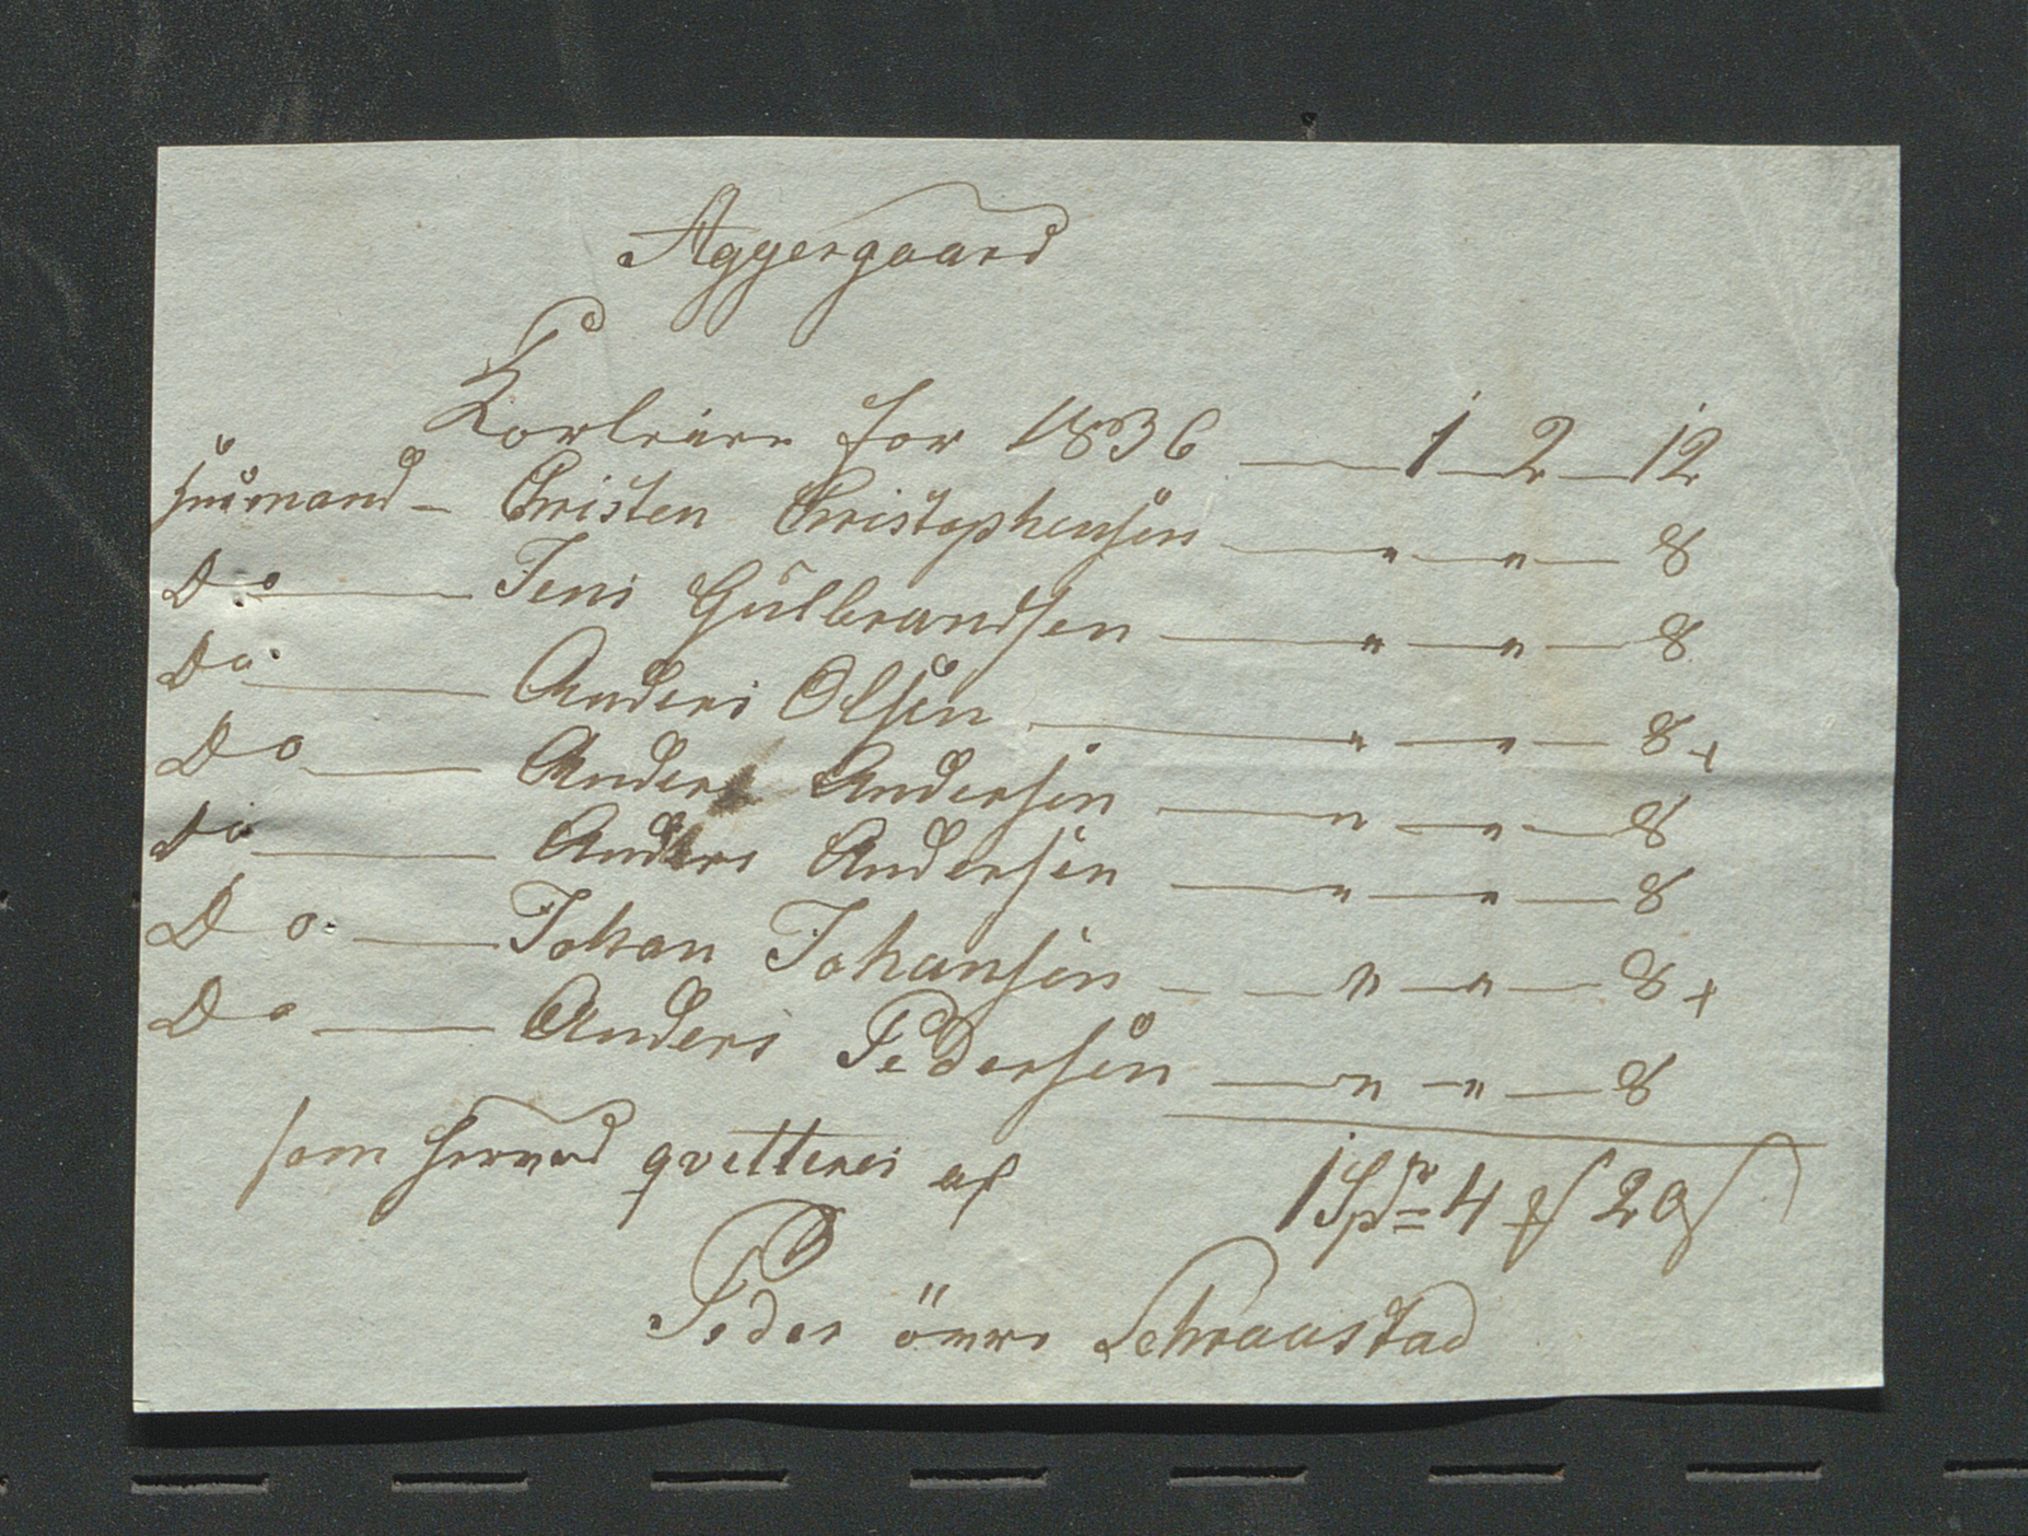 Aggergaard
for 1836 — 1 — 2 — 12
Huusmand — Christen Christophensen — " — " — 8
Do — Jens Gulbrandsen — " — " — 8
Do — Anders Olsen — " — " — 8 +
Do — Anders Andersen — " — " — 8
Do — Anders Andersen — " — " — 8
Do — Johan Johansen — " — " — 8 +
Do — Anders Pedersen — " — " — 8
som herved qvitteres af 1 Spdr 4 ß
Peder öwre Schraastad